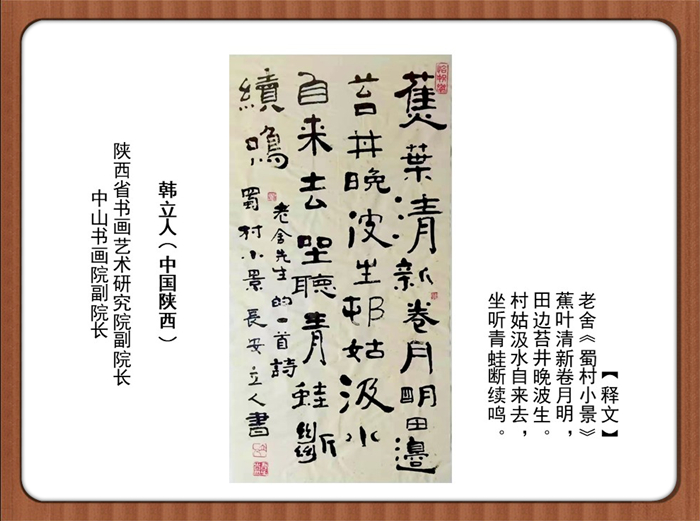 【释文】
老舍《蜀村小景》
蕉叶清新卷月明，
田边苔井晚波生。
村姑汲水自来去，
坐听青蛙断续鸣。
蕉葉清新卷月明田邊
苔井晚波生邨姑汲水
自来去坐聽青蛙斷
續鳴
老舍先生的一首詩
蜀村小景長安立人書
韩立人（中国陕西）
陕西省书画艺术研究院副院长
中山书画院副院长